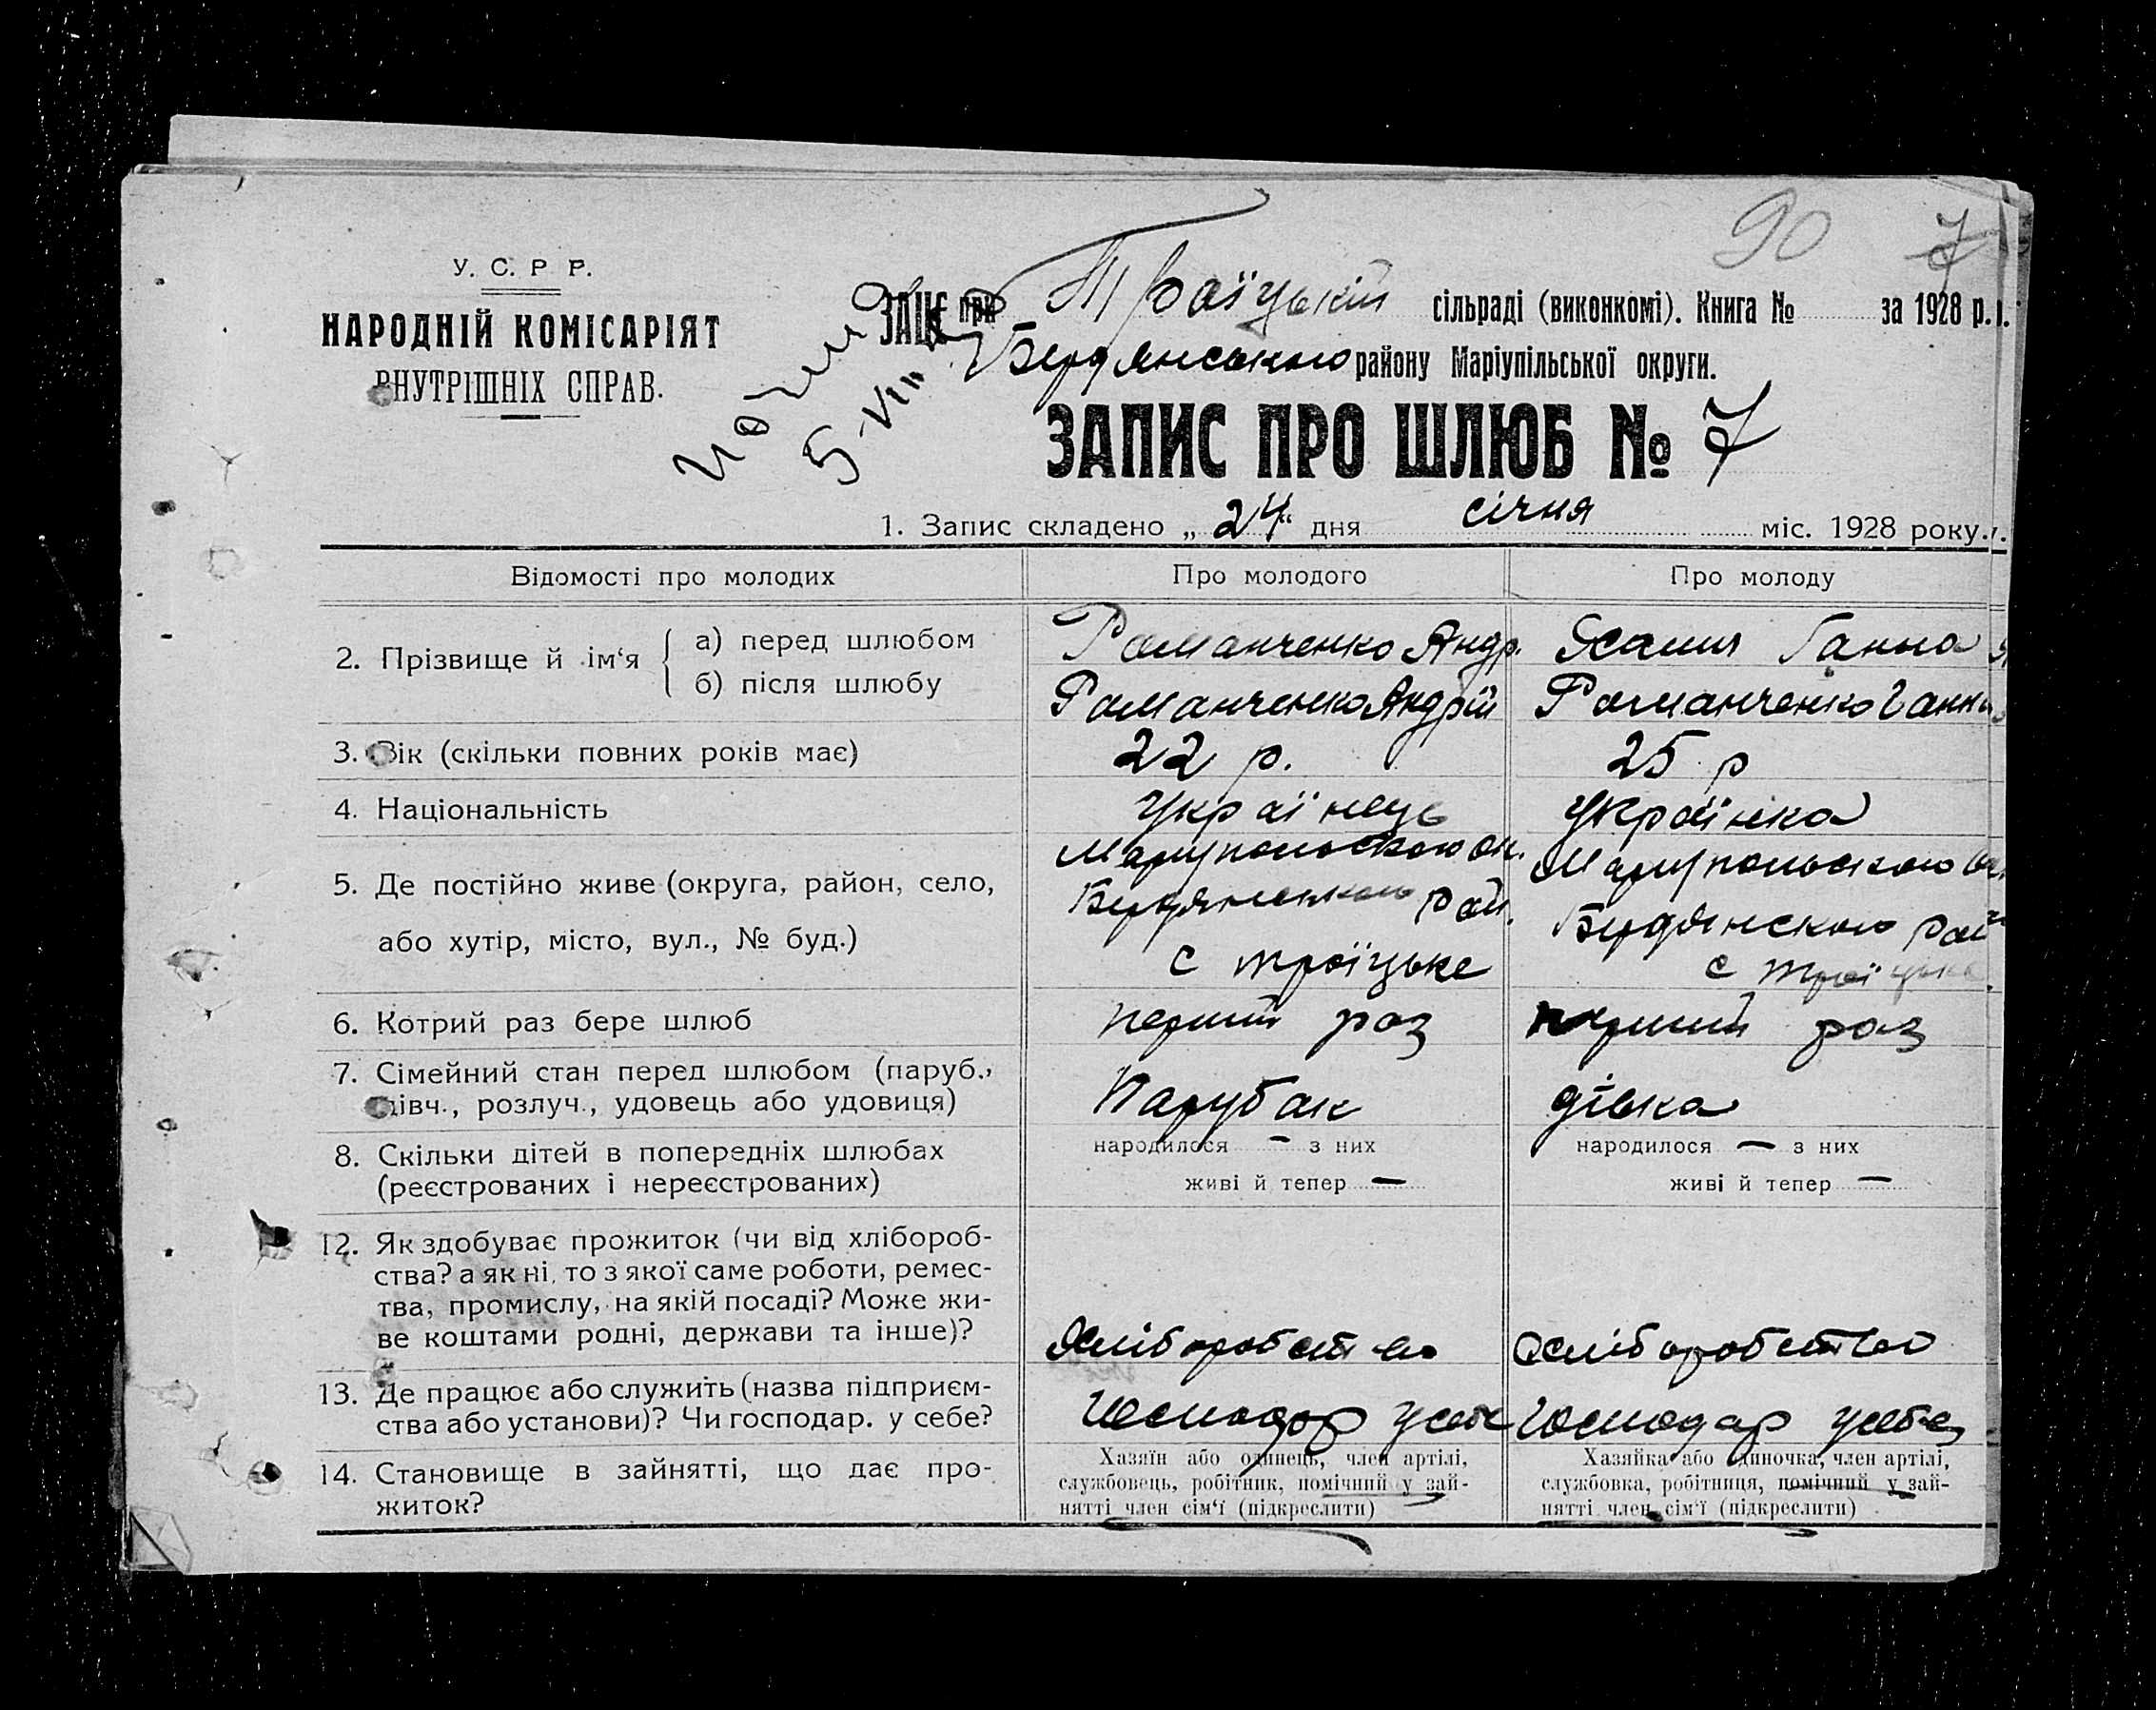 90 7
У. С. Р Р.
НАРОДНІЙ КОМІСАРІЯТ
ВНУТРІШНІХ СПРАВ.
ЗАЦС при Троїцькій сільраді (виконкомі). Книга № за 1928 р.
Бердянського району Маріупільської округи.
5-VIII
ЗАПИС ПРО ШЛЮБ № 7
1. Запис складено „ 24 “ дня січня міс. 1928 року.
Відомості про молодих Про молодого Про молоду
2. Прізвище й ім‘я { а) перед шлюбом Романченко Андр. Ганна
б) після шлюбу Романченко Андрій Романченко Ганна
3. Вік (скільки повних років має) 22 р. 25 р
4. Національність Українець Українка
5. Де постійно живе (округа, район, село, Маріупольського ок. Маріупольського ок
або хутір, місто, вул., № буд.) Бердянського рай. Бердянского рай
с троїцьке с троїцьке
6. Котрий раз бере шлюб перший раз перший раз
7. Сімейний стан перед шлюбом (паруб., Парубак дівка
дівч., розлуч., удовець або удовиця)
8. Скільки дітей в попередніх шлюбах народилося — з них народилося — з них
(реєстрованих і нереєстрованих) живі й тепер — живі й тепер —
12. Як здобуває прожиток (чи від хлібороб-
ства? а як ні, то з якої саме роботи, ремес-
тва, промислу, на якій посаді? Може жи-
ве коштами родні, держави та інше)? Хліборобство Хліборобство
13. Де працює або служить (назва підприєм-
ства або установи)? Чи господар. у себе? Господар у себе Господар у себе
14. Становище в зайнятті, що дає про- Хазяїн або одинець, член артілі, Хазяйка або одиночка, член артілі,
житок? службовець, робітник, помічний у зай- службовка, робітниця, помічний у зай-
нятті член сім‘ї (підкреслити) нятті член сім‘ї (підкреслити)